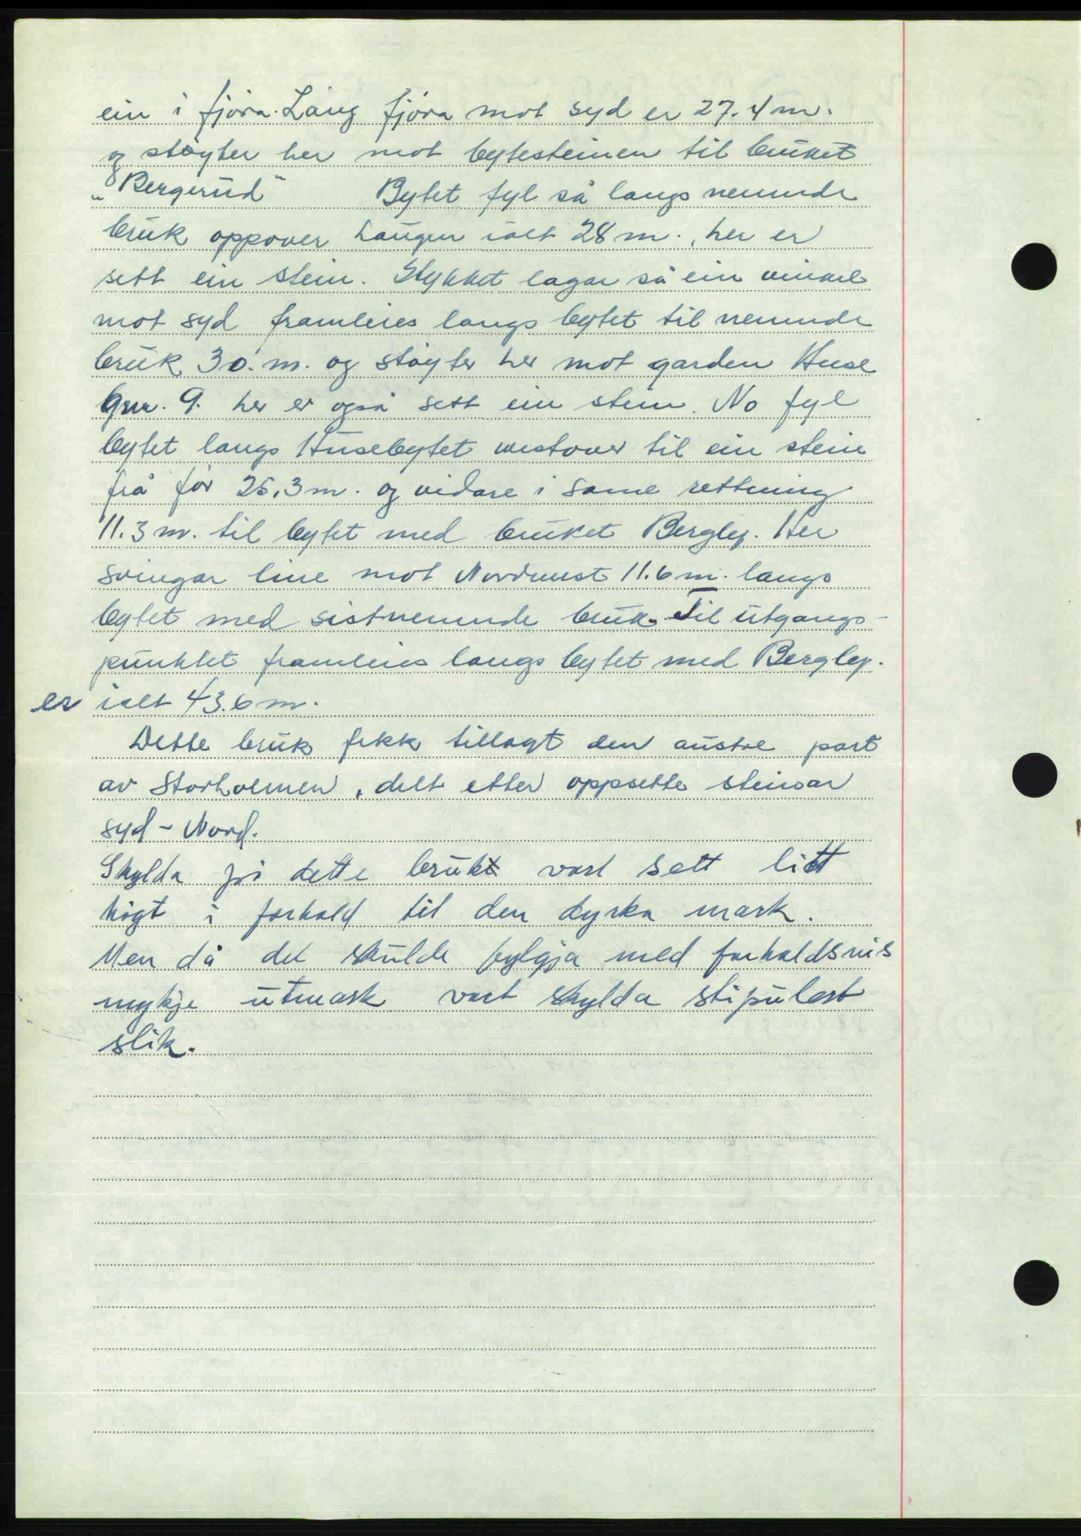 ein i fjöra. Lang fjöra mot syd er 27.4 m.
og støyter her mot bytesteinen til bruket
„Bergerud" Bytet fyl så langs nemnde
bruk oppover haugen ialt 28 m., her er
sett ein stein. Stykket lagar så ein vinkel
mot syd framleies langs bytet til nemnde
bruk 30. m. og støyter her mot garden Huse
Gnr. 9. her er også sett ein stein. No fyl
bytet langs Husebytet vestover til ein stein
frå før 25,3 m. og vidare i same rettning
11.3 m. til bytet med bruket Bergley. Her
svingar line mot Nordvest 11.6 m. langs
bytet med sistnemnde bruk. Til utgangs-
punktet framleies langs bytet med Bergley.
er ialt 43.6 m.
Dette bruk fekk tillagt den austre part
av Storholmen, delt etter oppsette steinar
syd - Nord.
Skylda på dette bruk vart sett litt
högt i forhold til den dyrka mark.
Men då det skulde fylgja med forholdsvis
mykje utmark vart skylda stipulert
slik.